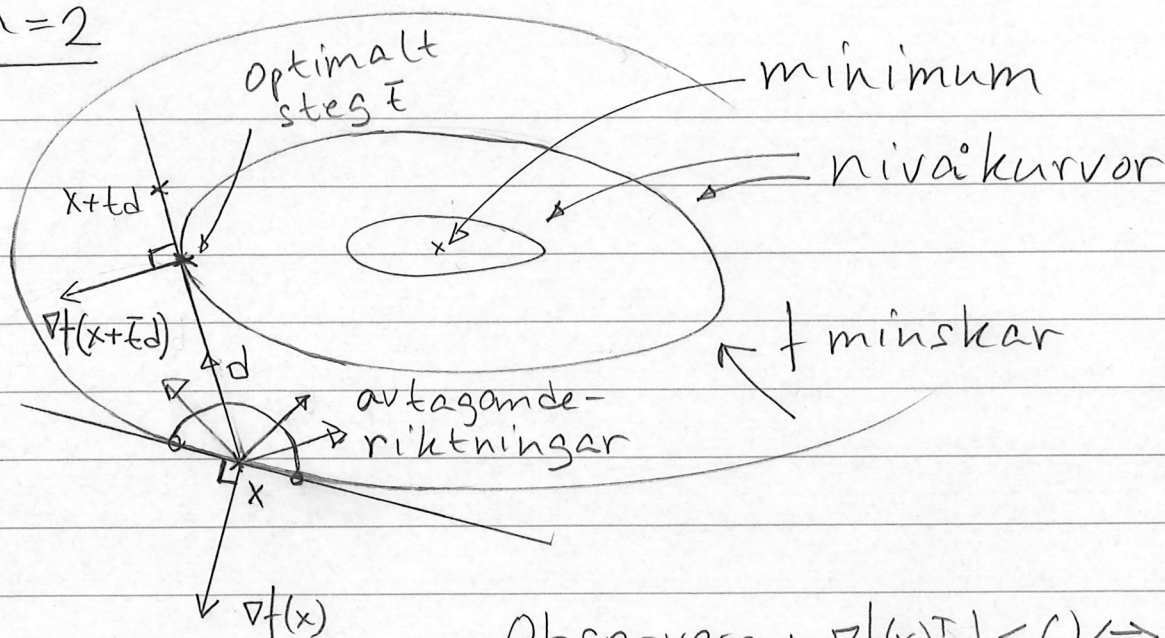 n=2
optimalt
steg t̄
minimum
nivåkurvor
x+td
∇f(x+t̄d)
d
f minskar
avtagande-
riktningar
x
∇f(x)
∇f(x)ᵀd<0